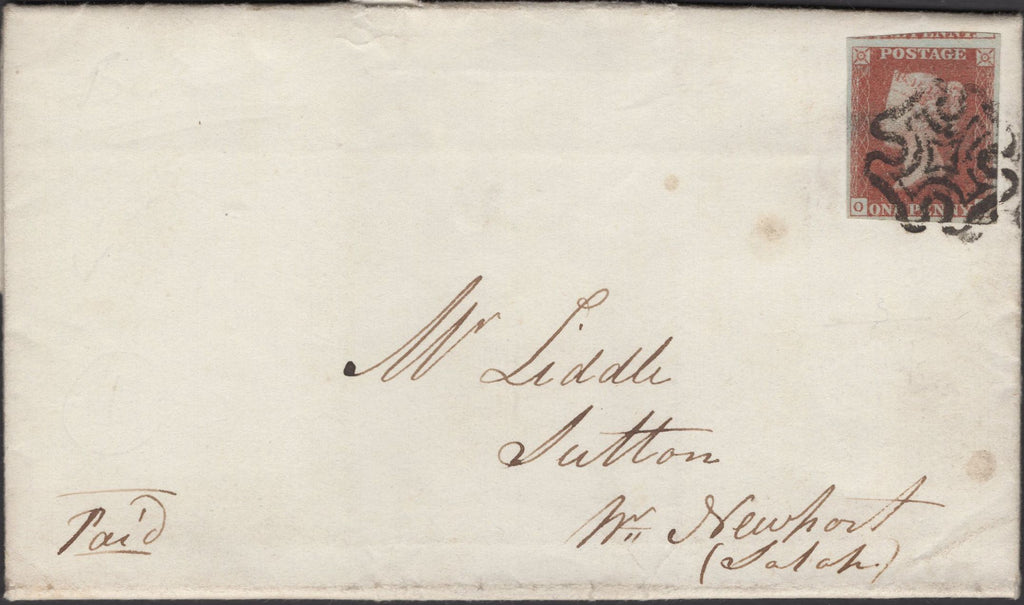 POSTAGE
O ONE PENNY
Mr Liddle
Sutton
Nr Newport
(Salop.)
Paid